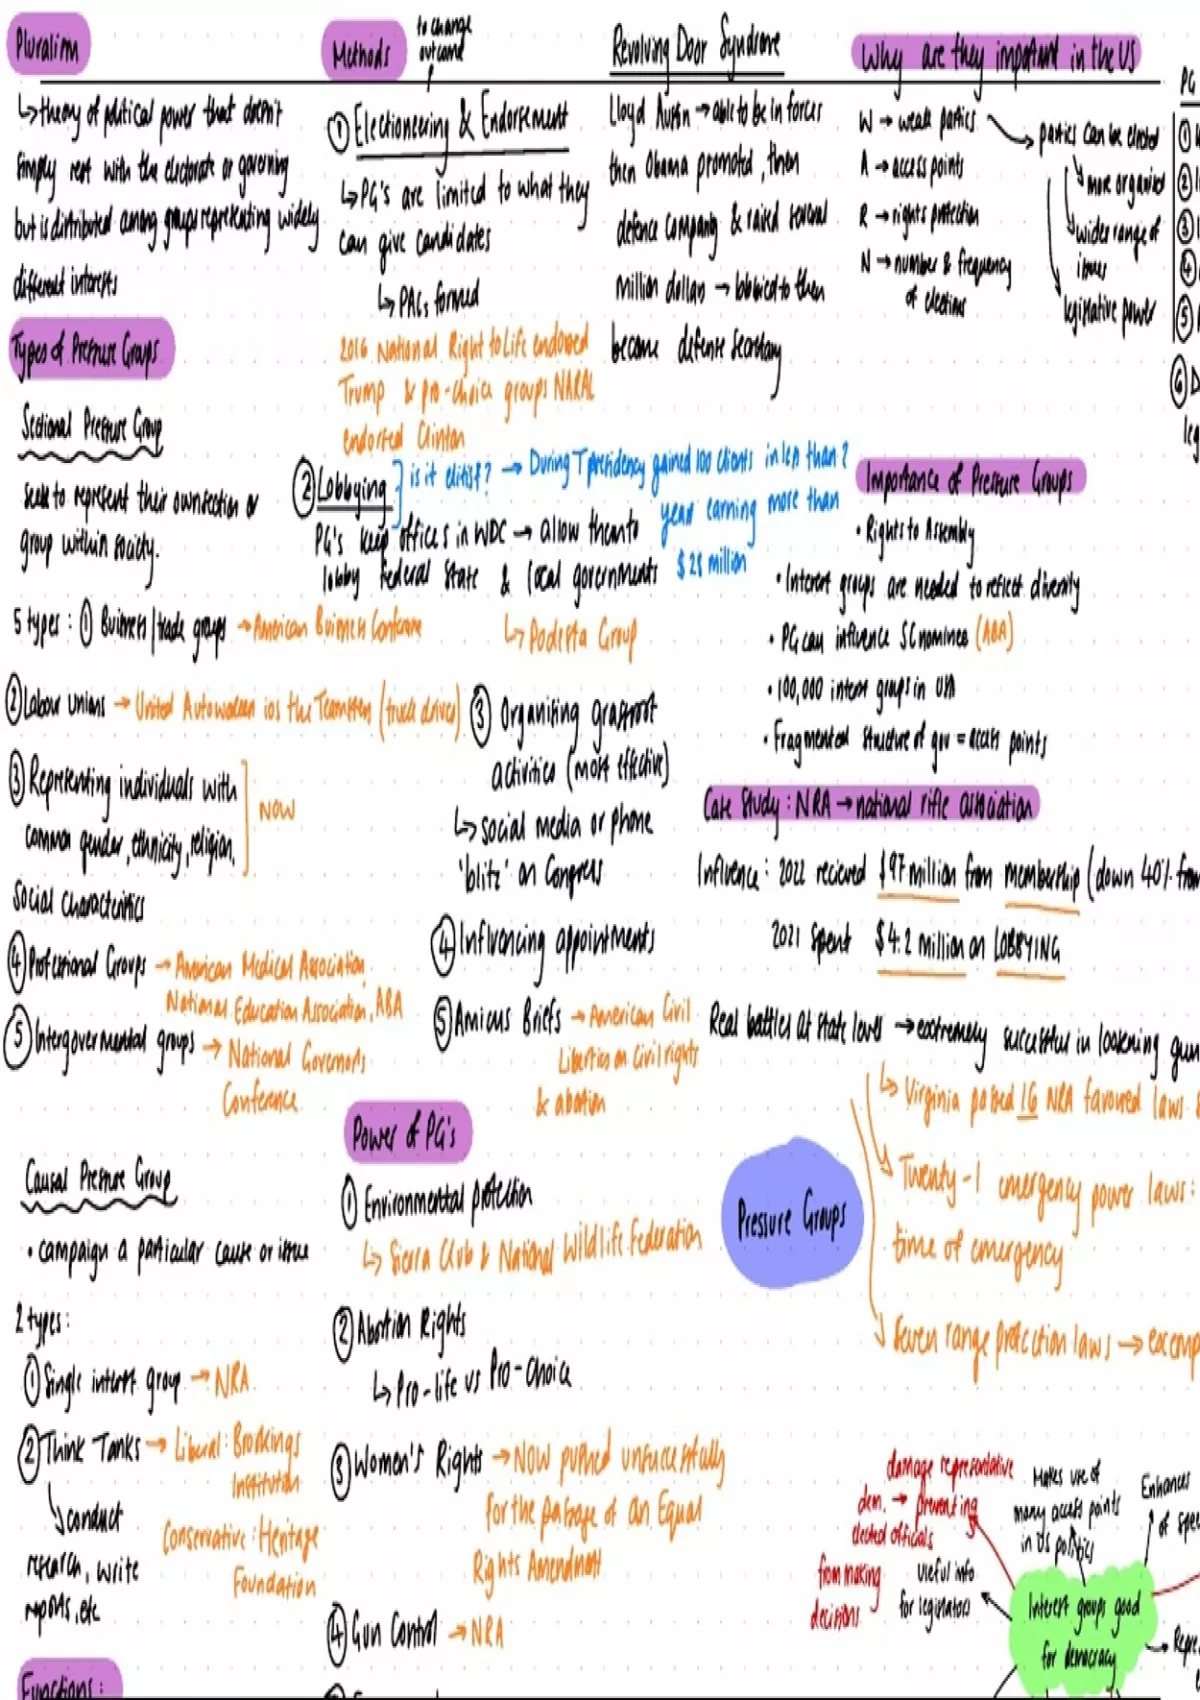 Pluralism
↳ theory of political power that doesn't
simply rest with the electorate or governing
but is distributed among groups representing widely
different interests
Types of Pressure Groups
Sectional Pressure Group
seek to represent their own section or
group within society.
5 types: ① Business/trade groups → American Business Conference
② Labour unions → United Autoworkers ios the Teamsters (truck drives)
③ Representing individuals with
common gender, ethnicity, religion,
social characteristics
NOW
④ Professional Groups → American Medical Association,
National Education Association, ABA
⑤ Intergovernmental groups → National Governors
Conference
Causal Pressure Group
• campaign a particular cause or issue
2 types:
① Single interest group → NRA
② Think Tanks → Liberal: Brookings
Institution
↳ conduct
research, write
reports, etc
Conservative: Heritage
Foundation
Functions:
Methods
to change
outcome
① Electioneering & Endorsement
↳ PG's are limited to what they
can give candidates
↳ PACs formed
2016 National Right to Life endorsed
Trump & pro-choice groups NARAL
endorsed Clinton
② Lobbying
is it elitist? → During T presidency gained 100 clients in less than 2
years earning more than
$28 million
PG's keep offices in WDC → allow them to
lobby federal state & local governments
↳ Podesta Group
③ Organising grassroot
activities (most effective)
↳ social media or phone
'blitz' on Congress
④ Influencing appointments
⑤ Amicus Briefs → American Civil
Liberties on civil rights
& abortion
Power of PG's
① Environmental protection
↳ Sierra Club & National Wildlife Federation
② Abortion Rights
↳ Pro-life vs Pro-Choice
③ Women's Rights → NOW pushed unsuccessfully
for the passage of an Equal
Rights Amendment
④ Gun Control → NRA
Revolving Door Syndrome
Lloyd Austin → able to be in forces
then Obama promoted, then
defence company & raised several
million dollars → lobbied to then
become defense secretary
Why are they important in the US
W → weak parties
A → access points
R → rights protection
N → number & frequency
of elections
parties can be elected
more organised
wider range of
issues
legislative power
PG
①
②
③
④
⑤
⑥ D
leg
Importance of Pressure Groups
• Rights to Assembly
• Interest groups are needed to reflect diversity
• PG can influence SC nominees (ABA)
• 100,000 interest groups in USA
• Fragmented structure of gov = access points
Case Study: NRA → national rifle association
Influence: 2022 recieved $97 million from membership (down 40% from
2021 spent $4.2 million on LOBBYING
Real battles at state level → extremely successful in loosening gun
↳ Virginia passed 16 NRA favoured laws
Twenty-1 emergency power laws:
time of emergency
Seven range protection laws → exemp
Pressure Groups
damage representative
dem. → preventing
elected officials
from making
decisions
Makes use of
many access points
in US politics
Enhances
of spe
useful info
for legislators
Interest groups good
for democracy
Repre